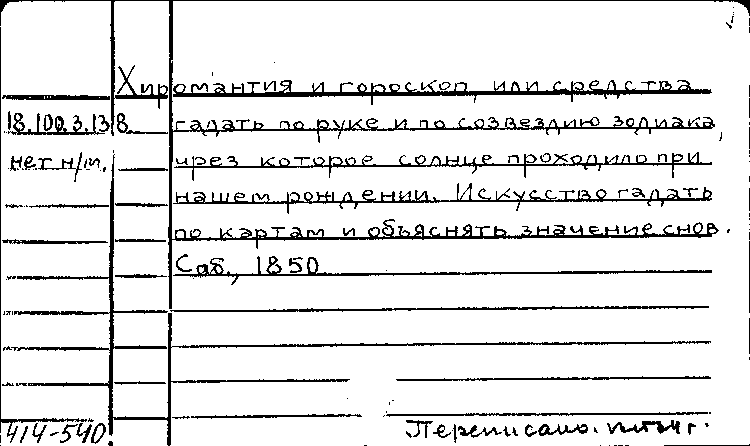 Хиромантия и гороскоп, или средства
18.100.3.138. гадать по руке и по созвездию зодиака,
нет н/т. чрез которое солнце проходило при
нашем рождении. Искусство гадать
по картам и объяснять значение снов.
Спб., 1850
414-540. Переписано.